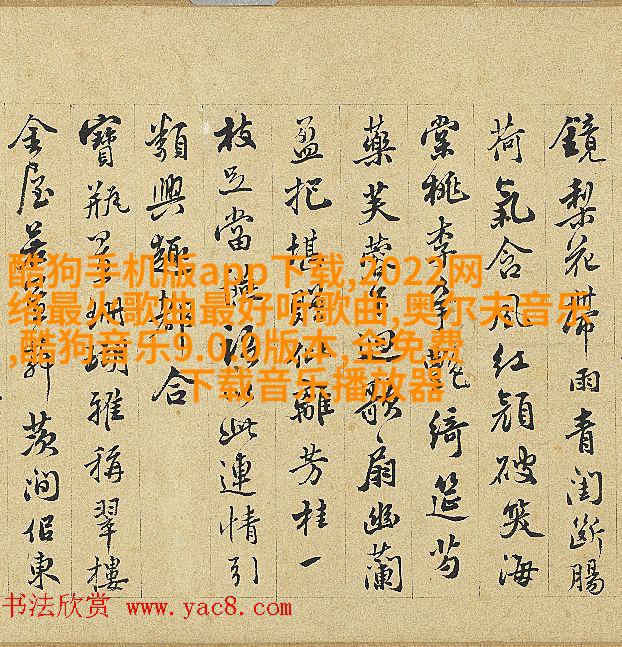 鏡梨花帶雨青閨斷腸
荷氣含風紅顏破笑海
棠桃李爭艷綺筵芍
藥芙蓉迴歌扇幽蘭
盈把堪贈仳離芳桂一
枝足當此連情引
類興趣都合
寶瓶珊瑚雅稱翠樓
金屋若茨澗佀東
酷狗手机版app下载,2022网
络最火歌曲最好听歌曲,奥尔夫音乐
,酷狗音乐9.0.0版本,全免费
下载音乐播放器
书法欣赏 www.yac8.com